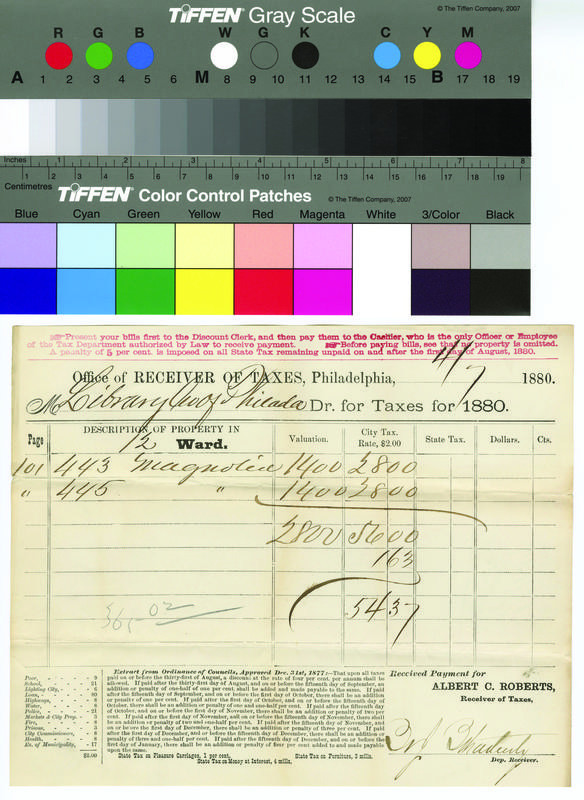 TIFFEN Gray Scale © The Tiffen Company, 2007
R G B W G K C Y M
A 1 2 3 4 5 6 M 8 9 10 11 12 13 14 15 B 17 18 19
Inches 1 2 3 4 5 6 7 8
Centimetres 1 2 3 4 5 6 7 8 9 10 11 12 13 14 15 16 17 18 19
TIFFEN Color Control Patches © The Tiffen Company, 2007
Blue Cyan Green Yellow Red Magenta White 3/Color Black
Present your bills first to the Discount Clerk, and then pay them to the Cashier, who is the only Officer or Employee
of the Tax Department authorized by Law to receive payment. Before paying bills, see that no property is omitted.
A penalty of 5 per cent. is imposed on all State Tax remaining unpaid on and after the first day of August, 1880.
Office of RECEIVER OF TAXES, Philadelphia, 4/7 1880.
M Library Co of Philada Dr. for Taxes for 1880.
Page DESCRIPTION OF PROPERTY IN 12 Ward. Valuation. City Tax. Rate, $2.00 State Tax. Dollars. Cts.
101 443 Magnolia 1400 2800
" 445 " 1400 2800
2800 5600
163
5437
02
Extract from Ordinance of Councils, Approved Dec. 31st, 1877:—That upon all taxes
paid on or before the thirty-first day of August, a discount at the rate of four per cent. per annum shall be
allowed. If paid after the thirty-first day of August, and on or before the fifteenth day of September, an
addition or penalty of one-half of one per cent. shall be added and made payable to the same. If paid
after the fifteenth day of September, and on or before the first day of October, there shall be an addition
or penalty of one per cent. If paid after the first day of October, and on or before the fifteenth day of
October, there shall be an addition or penalty of one and one-half per cent. If paid after the fifteenth
day of October, and on or before the first day of November, there shall be an addition or penalty of two per
cent. If paid after the first day of November, and on or before the fifteenth day of November, there shall
be an addition or penalty of two and one-half per cent. If paid after the fifteenth day of November, and
on or before the first day of December, there shall be an addition or penalty of three per cent. If paid
after the first day of December, and on or before the fifteenth day of December, there shall be an addition or
penalty of three and one-half per cent. If paid after the fifteenth day of December, and on or before the
first day of January, there shall be an addition or penalty of four per cent added to and made payable
upon the same.
State Tax on Pleasure Carriages, 1 per cent, State Tax on Furniture, 2 mills.
State Tax on Money at Interest, 4 mills.
Poor, 9
School, 21
Lighting City, 6
Loan, 80
Highways, 6
Water, 6
Police, 21
Markets & City Prop. 3
Fire, 8
Prisons, 3
City Commissioners, 8
Health, 6
Ex. of Municipality, 17
$2.00
Received Payment for
ALBERT C. ROBERTS,
Receiver of Taxes,
Dep. Receiver.